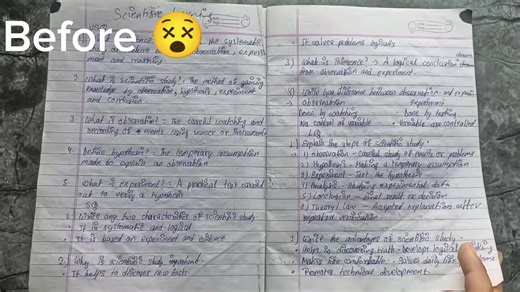 Before 😵
Scientific
the systematic
observation, experi-
ment and reasoning
2. What is scientific study? : The method of gaining
knowledge by observation, hypothesis, experiment
and conclusion
3. What is observation? : The careful watching and
recording of events using senses or
4. Define hypothesis? : The temporary assumption
made to explain an observation
5. What is experiment? : A practical test carried
out to verify a hypothesis
SQ
1. Write any two characteristics of scientific study
• It is systematic and logical
• It is based on experiment and evidence
2) Why is scientific study important
• It helps to discover new facts
• It solves problems logically
3) What is inference? → A logical conclusion drawn
from observation and experiment
4) Write two difference between observation and
Observation Experiment
Done by watching • Done by testing
No control of variable • Variable are controlled
LQ
1) Explain the steps of scientific study :
1) Observation - Careful study of events or problems
2) Hypothesis - Making a temporary assumption
3) Experiment - Test the hypothesis
4) Analysis - Studying experimental data
5) Conclusion - Final result or decision
6) Theory/Law - Accepted explanation after
repeated verification
2) Write the advantages of scientific study
• Helps in discovering truth • Develops logical
• Makes life comfortable • Solves daily life
• Promotes technical development